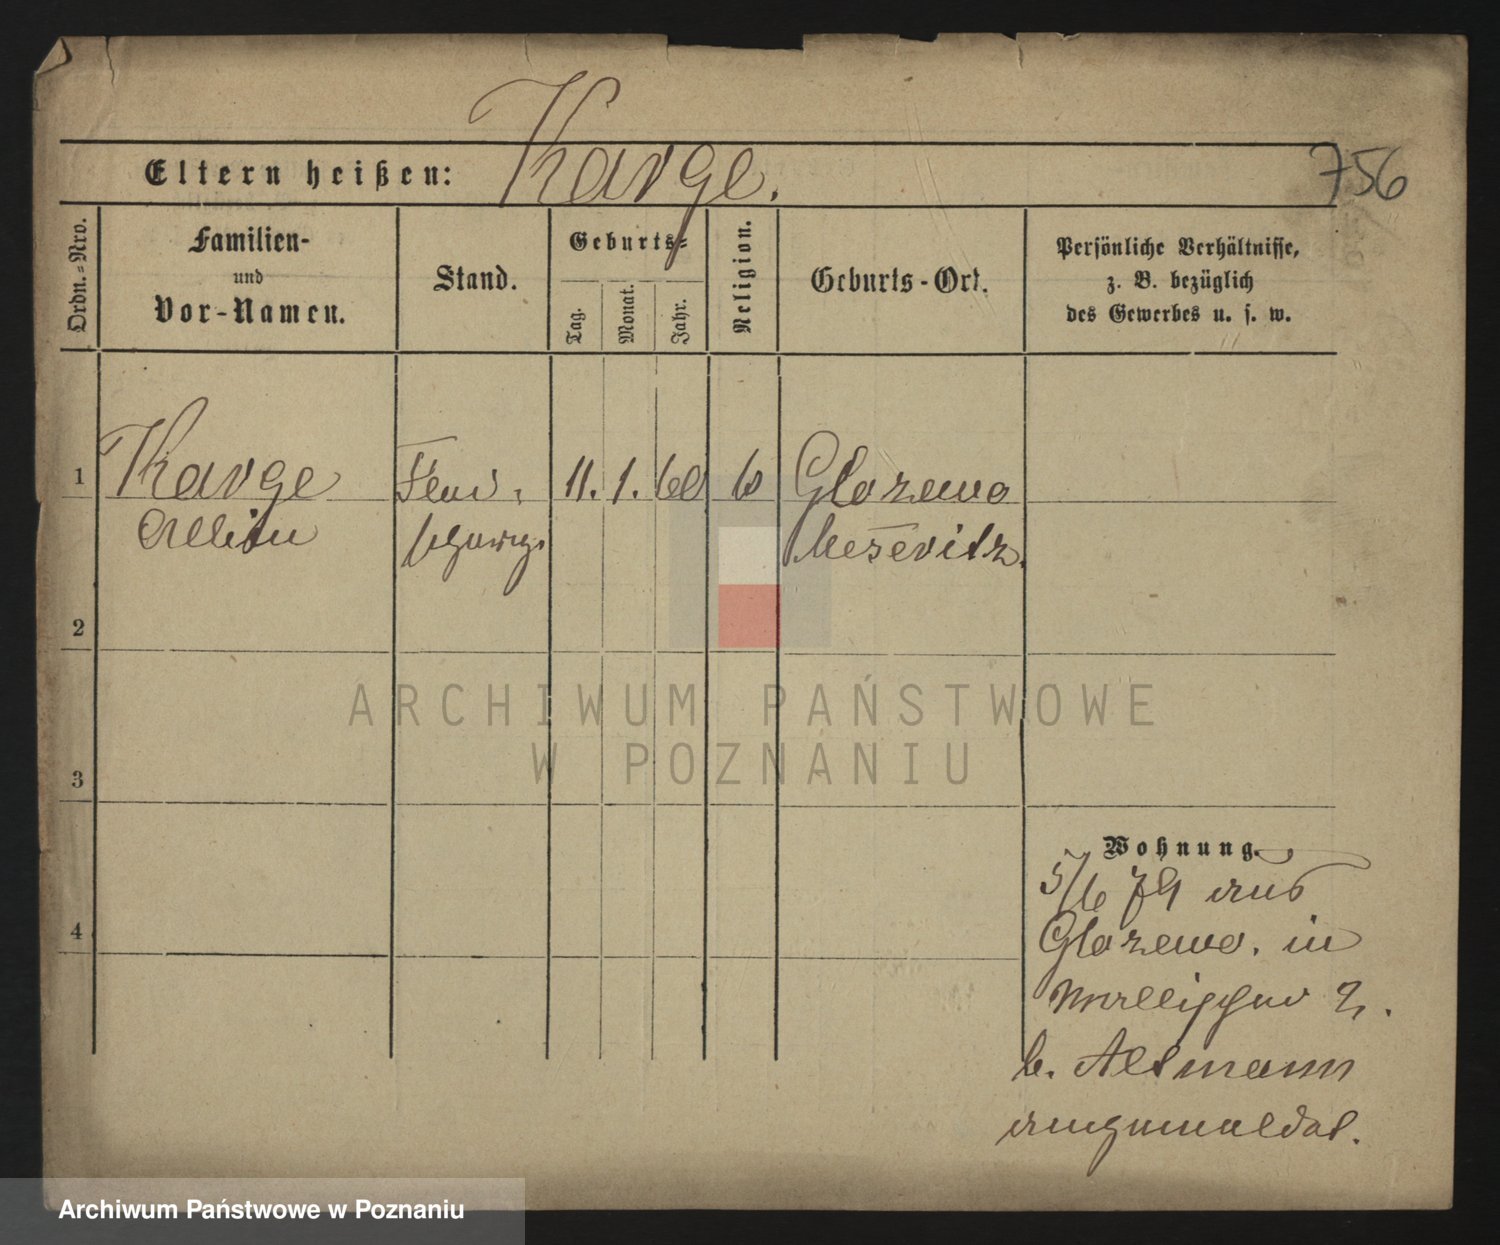 Karge.
756
Eltern heißen:
Ordn.=Nro.
Familien-
und
Vor-Namen.
Stand.
Geburts=
Tag.
Monat.
Jahr.
Religion.
Geburts-Ort.
Persönliche Verhältnisse,
z. B. bezüglich
des Gewerbes u. s. w.
1
Karge
11. 1. 60
Glozewo
2
ARCHIWUM PAŃSTWOWE
W POZNANIU
3
Wohnung.
5/6 79 aus
4
Glozewo. in
Wallischei 2.
b. Altmann
angemeldet.
Archiwum Państwowe w Poznaniu